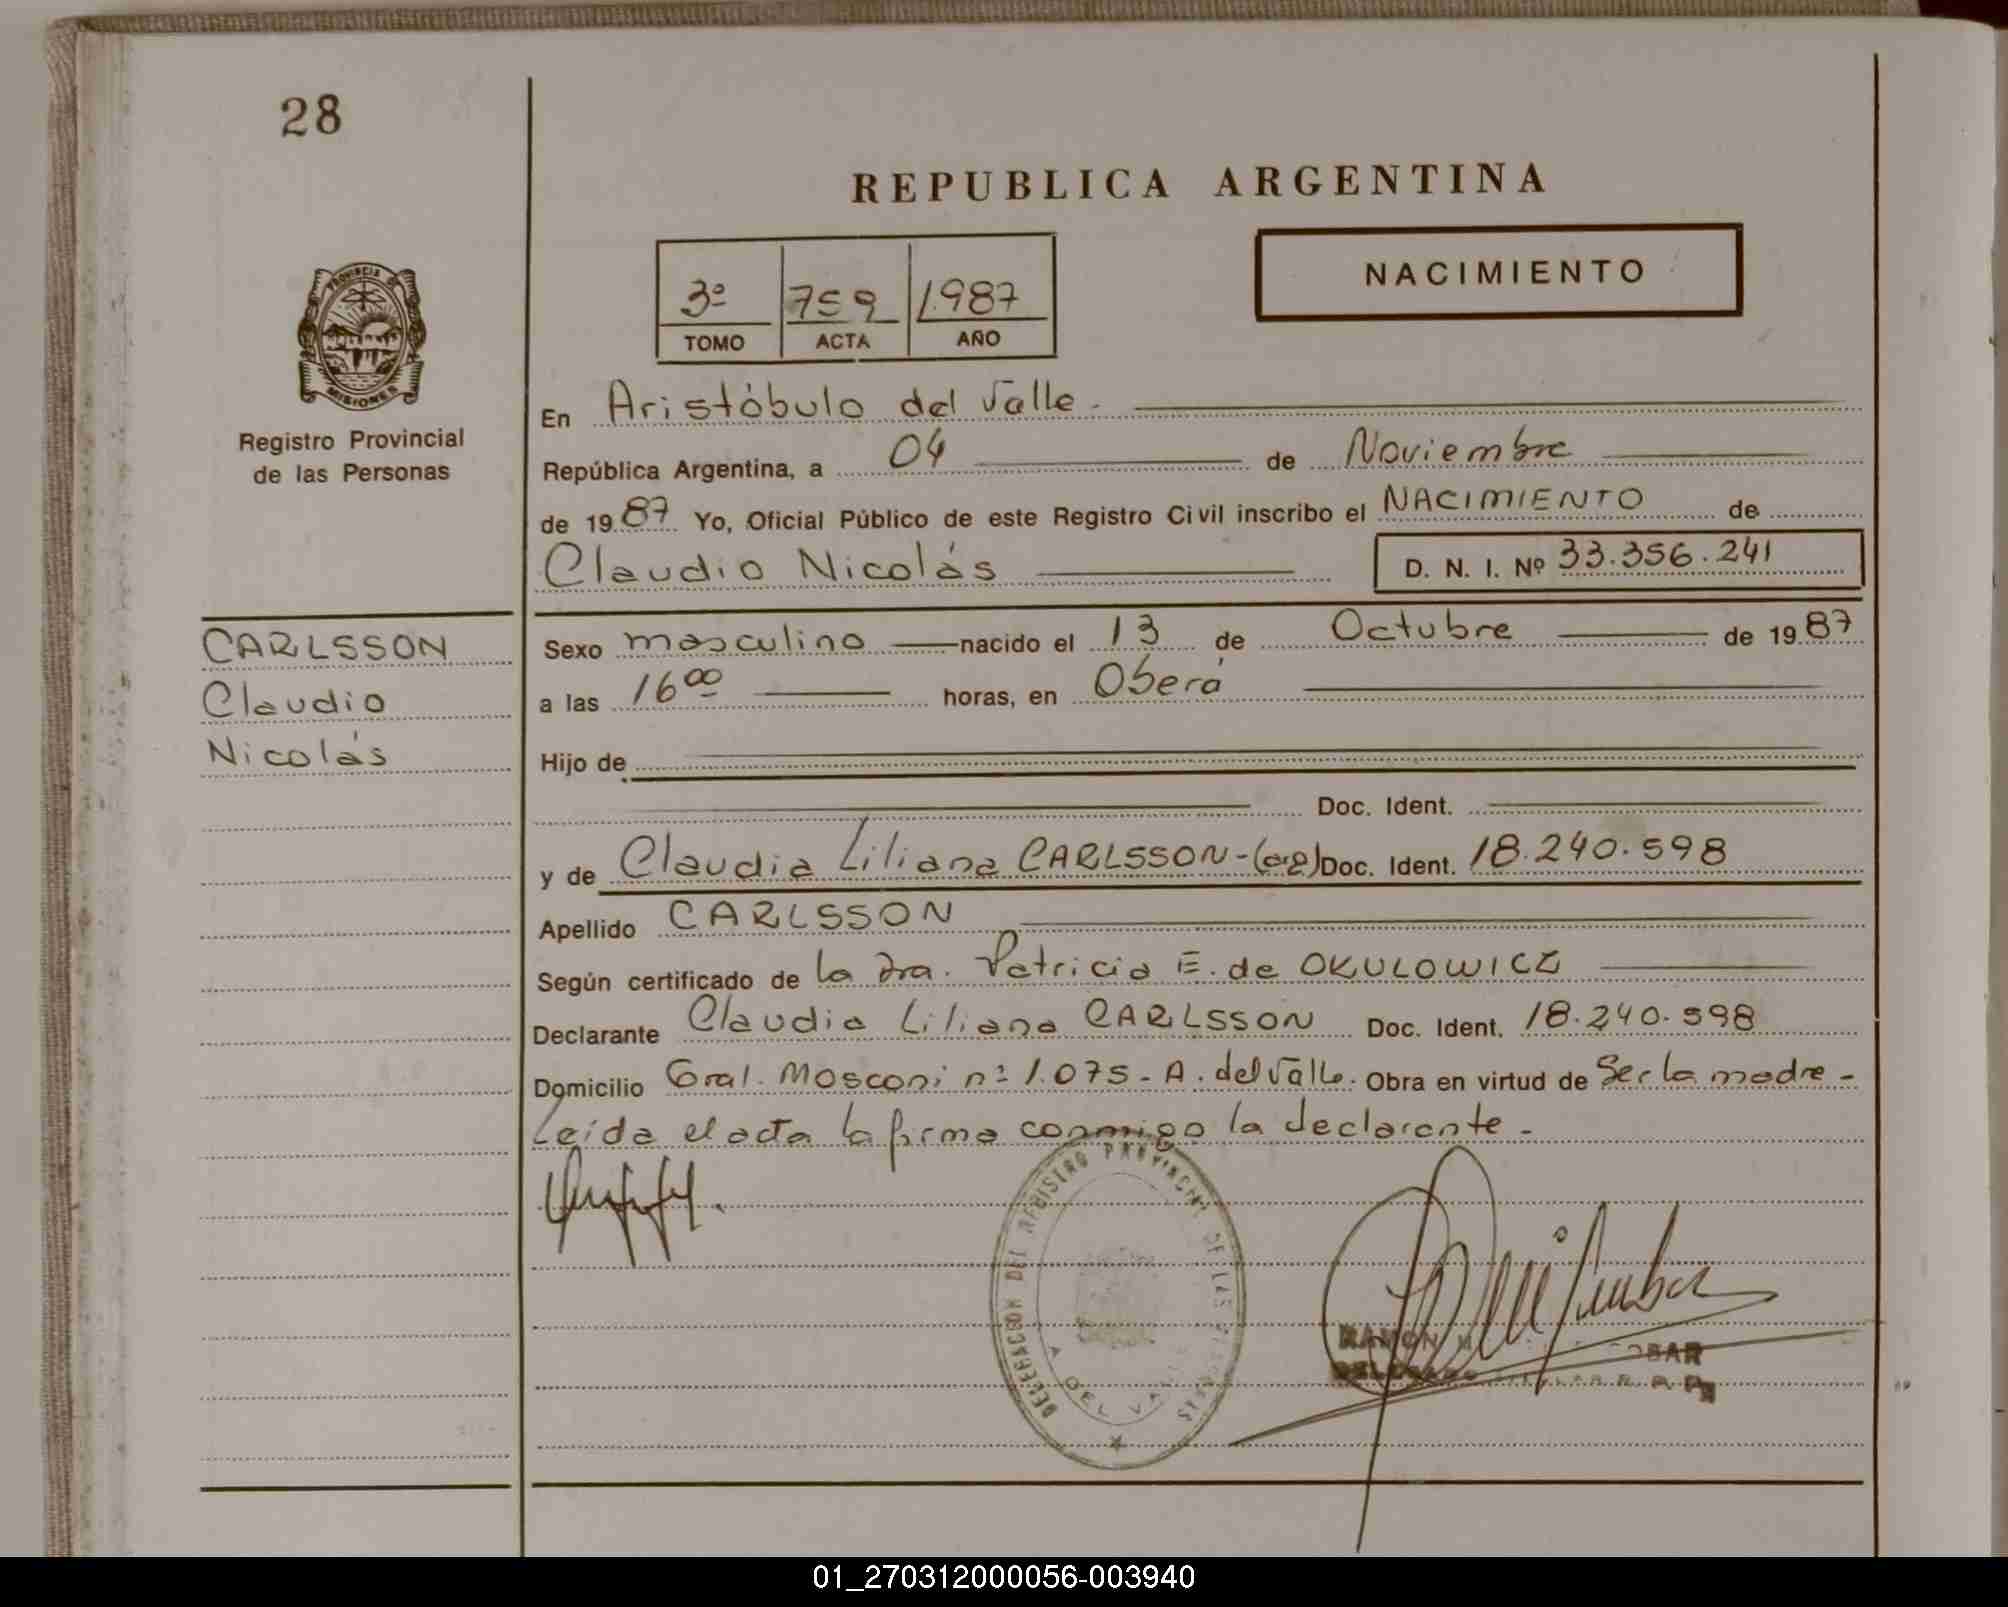 28
REPUBLICA ARGENTINA
3º 759 1.987
TOMO ACTA AÑO
NACIMIENTO
PROVINCIA DE
MISIONES
Registro Provincial
de las Personas
En Aristóbulo del Valle.
República Argentina, a 04 de Noviembre
de 1987 Yo, Oficial Público de este Registro Civil inscribo el NACIMIENTO de
Claudio Nicolás D. N. I. Nº 33.356.241
CARLSSON
Claudio
Nicolás
Sexo masculino nacido el 13 de Octubre de 1987
a las 16 00 horas, en Oberá
Hijo de
Doc. Ident.
y de Claudia Liliana CARLSSON-(arg) Doc. Ident. 18.240.598
Apellido CARLSSON
Según certificado de la Dra. Patricia E. de OKULOWICZ
Declarante Claudia Liliana CARLSSON Doc. Ident. 18.240.598
Domicilio Gral. Mosconi nº 1.075- A. del Valle. Obra en virtud de Ser la madre-
Leída el acta la firma conmigo la declarante-
DELEGACION DEL REGISTRO PROVINCIAL DE LAS PERSONAS
A. DEL VALLE
RAMON
01_270312000056-003940